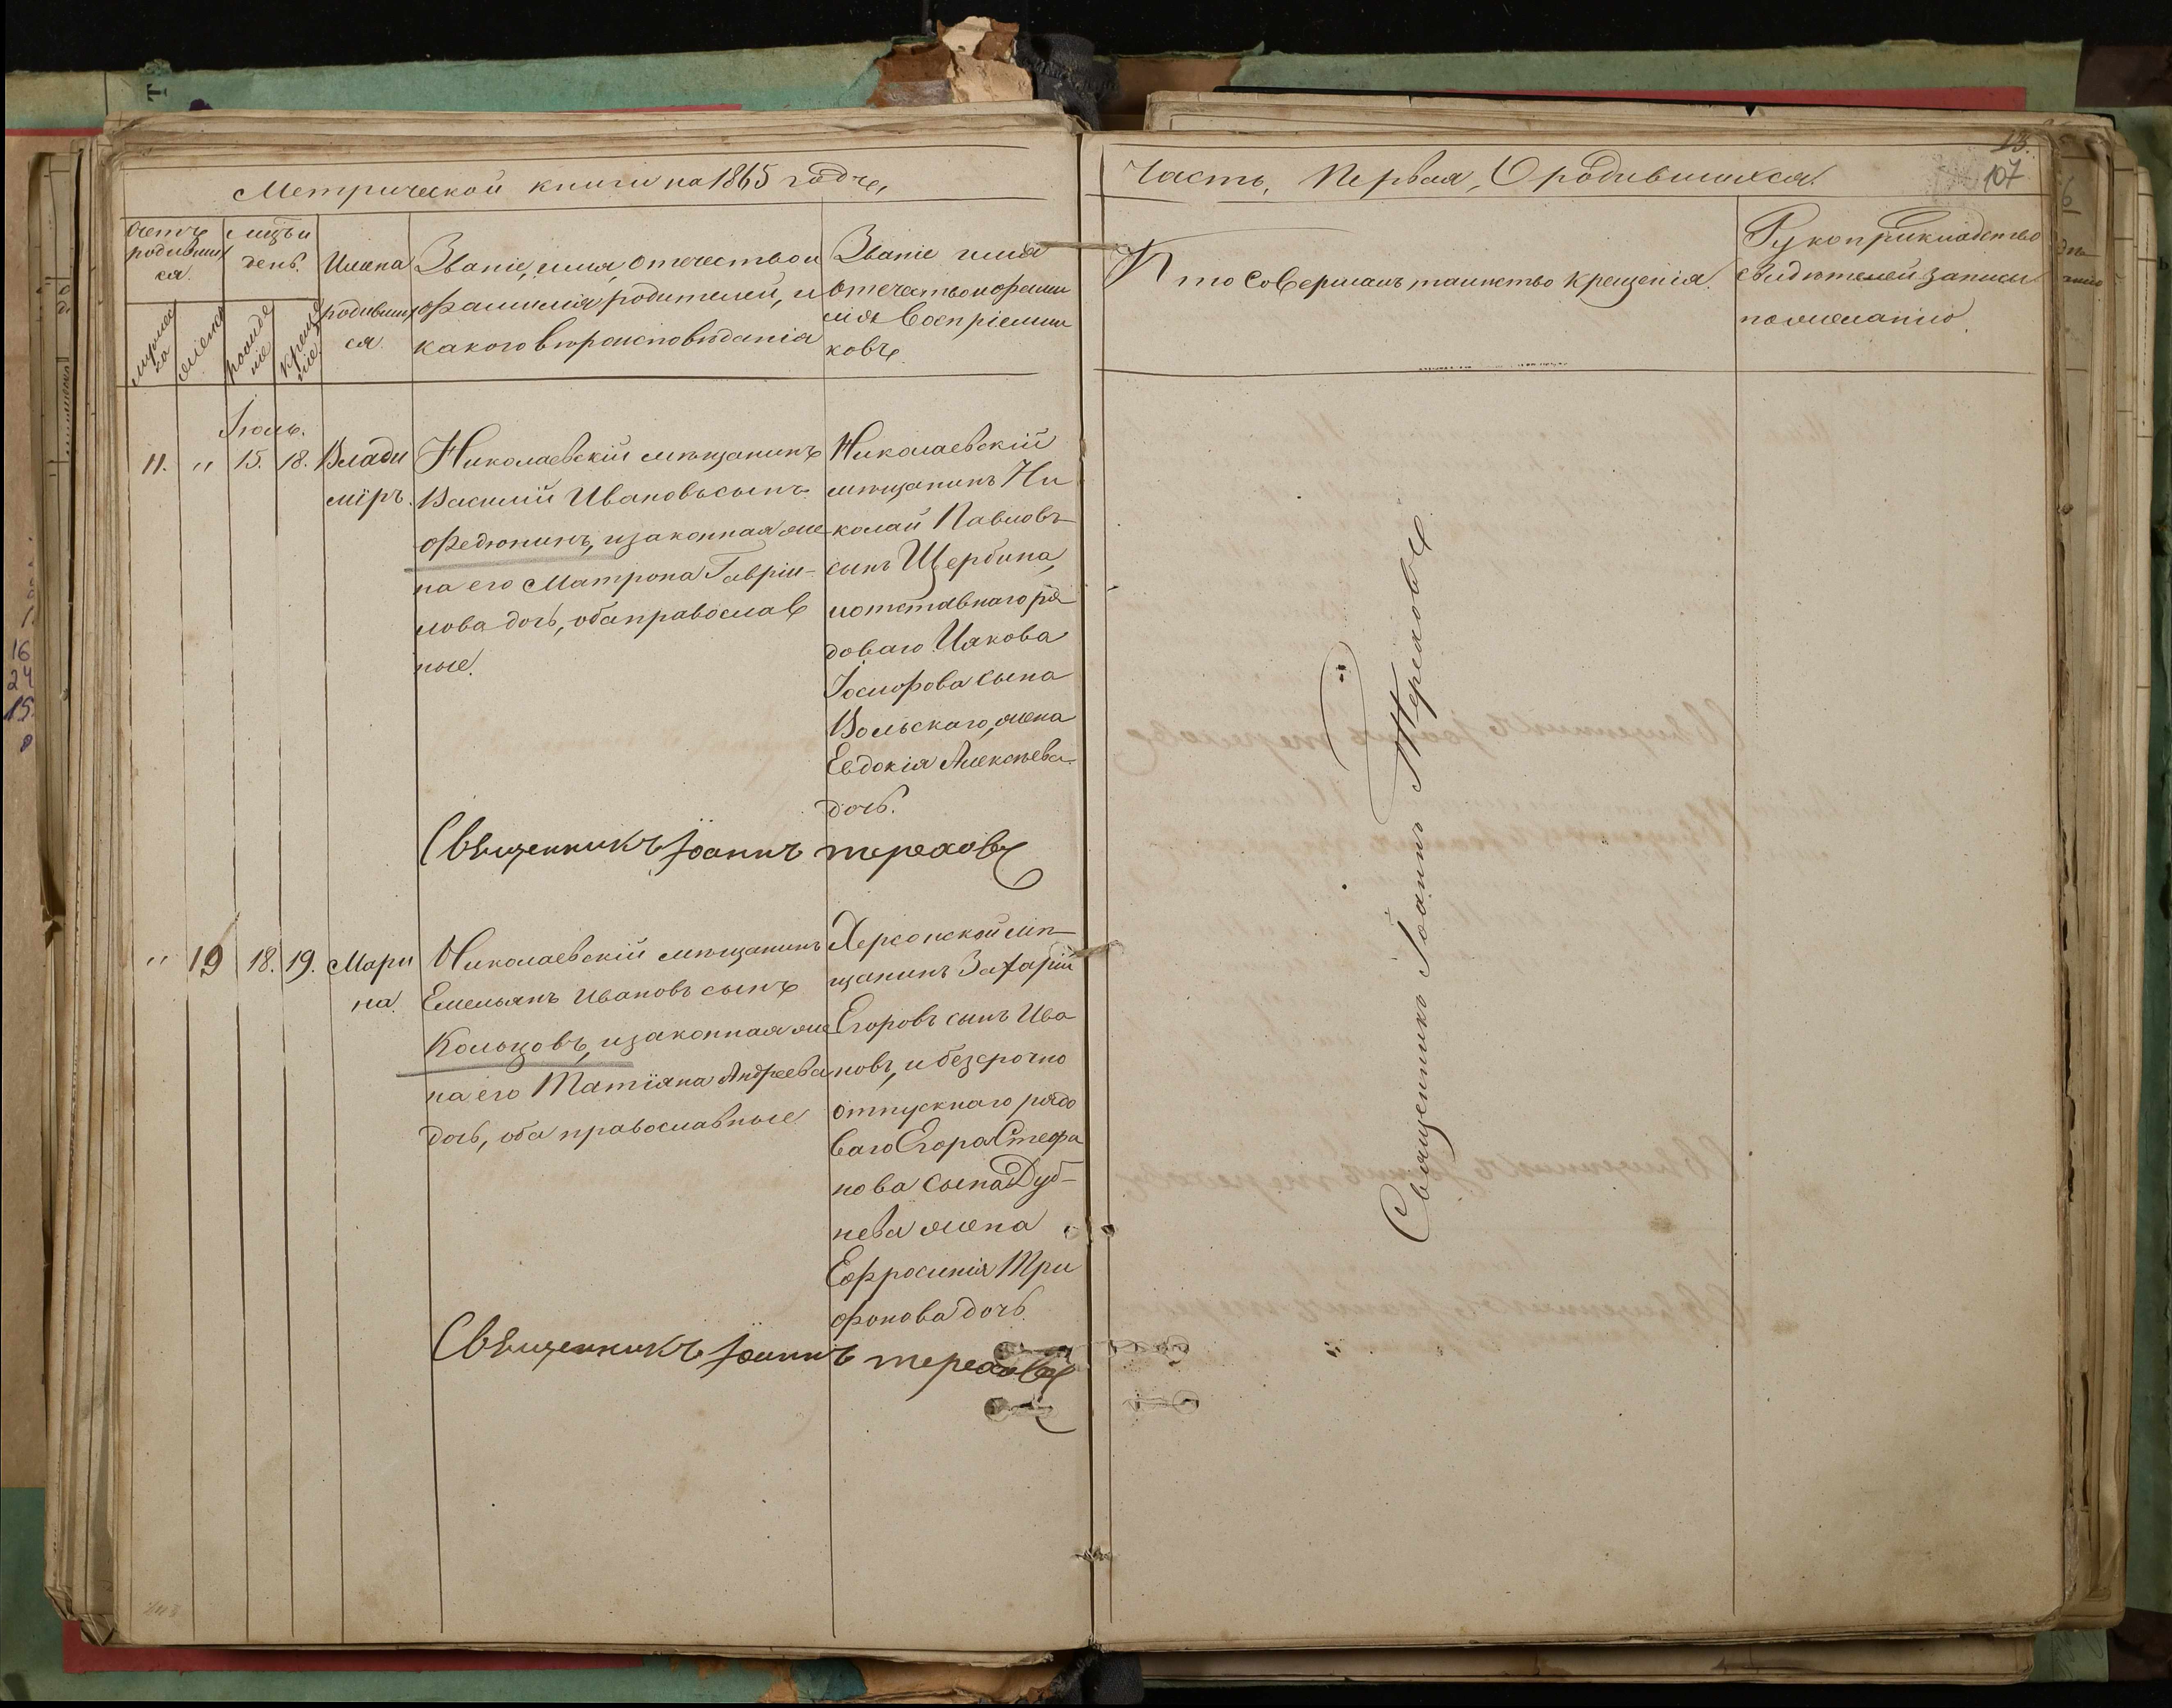 Метрической книги на 1865 годъ,
Счетъ родившихся.
Мцъ и день.
Имена родившихся.
Званіе, имя, отчество и фамилія родителей, и какого вѣроисповѣданія
Званіе имя отечество и фамилія воспріемниковъ
мужеска
женска
рожденіе
крещеніе
Іюль.
11. " 15. 18.
Влади
міръ.
Николаевскій мѣщанинъ
Василій Ивановъ сынъ
Федюнинъ, и законная же
на его Матрона Гавріи-
лова дочь, оба православ
ные.
Николаевскій
мѣщанинъ Ни
колай Павловъ
сынъ Щербина,
и отставнаго ря
доваго Иякова
Іосифова сына
Вольскаго, жена
Евдокія Алексѣева
дочь.
Священникъ Іоаннъ Тереховъ
" 19 18. 19.
Мари
на.
Николаевскій мѣщанинъ
Емельянъ Ивановъ сынъ
Кольцовъ, и законная же
на его Татіяна Андреева
дочь, оба православные
Херсонской мѣ-
щанинъ Захарій
Егоровъ сынъ Ива
новъ, и безсрочно
отпускнаго рядо
ваго Егора Стефа
нова сына Дуб-
нева жена
Ефросинія Три
фонова дочь.
Священникъ Іоаннъ Тереховъ
Часть, Первая, О родившихся.
13.
107
Кто совершалъ таинство крещенія.
Рукоприкладство
свидѣтелей записи
по желанію.
Священникъ Іоаннъ Тереховъ
16
24
15